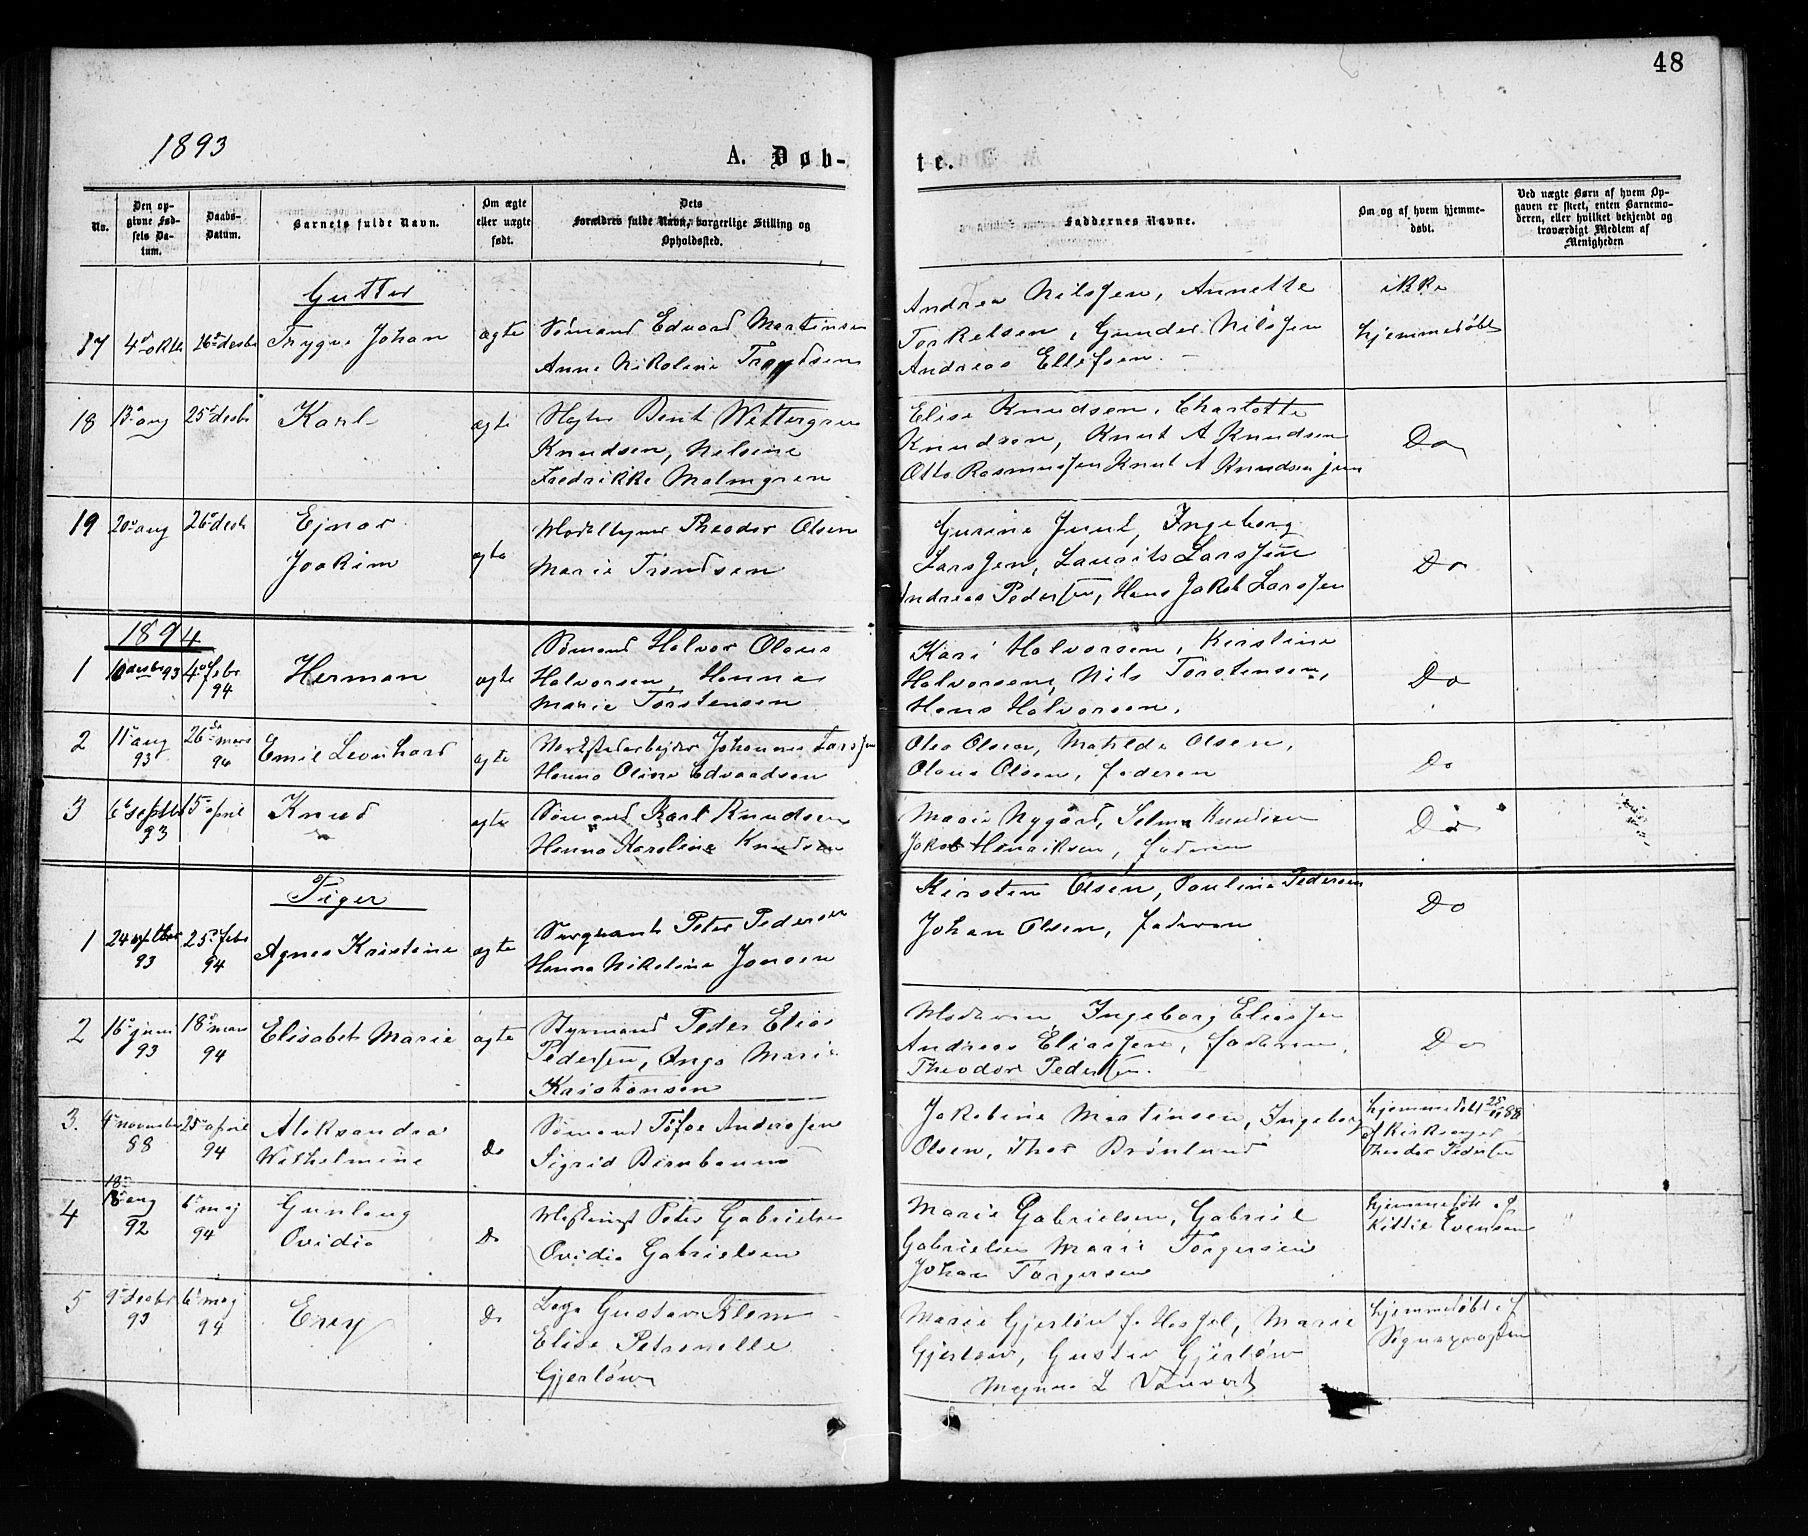 48
1893
A. Døb-
te.
No.
Den op-
givne Fød-
sels Da-
tum.
Daabs-
Datum.
Barnets fulde Navn.
Om ægte
eller uægte
født.
Dets
Forældres fulde Navn, borgerlige Stilling og
Opholdssted.
Faddernes Navne.
Om og af hvem hjemme-
døbt.
Ved uægte Børn af hvem Op-
gaven er skeet, enten Barnemo-
deren, eller hvilket bekjendt og
troværdigt Medlem af
Menigheden
Gutter
17 4de okt 26de desbr Trygve Johan ægte Sømand Edvard Martinsen
Anne Nikoline Trondsen
Andrea Nilssen, Annette
Torkelsen, Gunder Nilssen
Andreas Ellefsen.
ikke
hjemmedøbt
18 13de aug 25de desbr Karl ægte Bent Wettergren
Knudsen, Nilsine
Fredrikke Malmgren
Elise Knudsen, Charlotte
Knudsen, Knut A Knudsen
Otto Rasmussen Knut A Knudsen jun
Do
19 20de aug 26de desb Ejnar
Joakim
ægte
Theodor Olsen
Marie Trondsen
Gurine Juul, Ingeborg
Larssen, Laurits Larssen
Andreas Pedersen, Hans Jakob Larssen
Do
1894
1 10 desbr 93 4de febr
94
Herman
ægte
Sømand Halvor Olaus
Halvorsen, Hanna
Marie Torstensen
Kari Halvorsen, Kirstine
Halvorsen, Nils Torstensen,
Hans Halvorsen.
Do
2 11de aug
93
26de mars
94
Emil Leonhard ægte Verkstedarbejder Johannes Larssen
Hanna Oline Edvardsen
Olea Olsen, Matilde Olsen,
Olaus Olsen, faderen
Do
3 6de septbr
93
15de april Knud ægte Sømand Karl Knudsen
Hanna Karoline Knudsen
Marie Nygård, Selma Knudsen
Jakob Henriksen, faderen
Do
Piger
1 24 septbr
93
25de febr
94
Agnes Kristine ægte Sergeant Peter Pedersen
Hanna Nikoline Jensen
Kirsten Olsen, Pauline Pedersen
Johan Olsen, faderen
Do
2 16de juni
93
18de mars
94
Elisabet Marie ægte Styrmand Peder Elias
Pedersen, Inga Marie
Kristiansen
Moderen Ingeborg Eliassen
Andreas Eliassen, faderen,
Theodor Pedersen.
Do
3. 4de november
88
25de april
94
Aleksandra
Wilhelmine
Do
Sømand Tofoe Anderssen
Sigrid Birnbaum
Jakobine Martinsen, Ingeborg
Olsen, Thor Brønlund
hjemmedøbt 25/11 88
af Kirkesanger
Theodor Pedersen
4 18de
18de aug
92
6te maj
94
Gunlaug
Ovidia
Do
Peter Gabrielsen
Ovidia Gabrielsen
Marie Gabrielsen, Gabriel
Gabrielsen Marie Torgersen
Johan Torgersen
hjemmedøbt af
Kittil Evensen
5 9de desbr
93
6te maj
94
Eney
Do
Gustav Klem
Elise Petronelle
Gjerløw
Marie Gjerløw f. Hessel, Marie
Gjerløw, Gustav Gjerløw
Magnus L
hjemmedøbt af
Sognepræsten